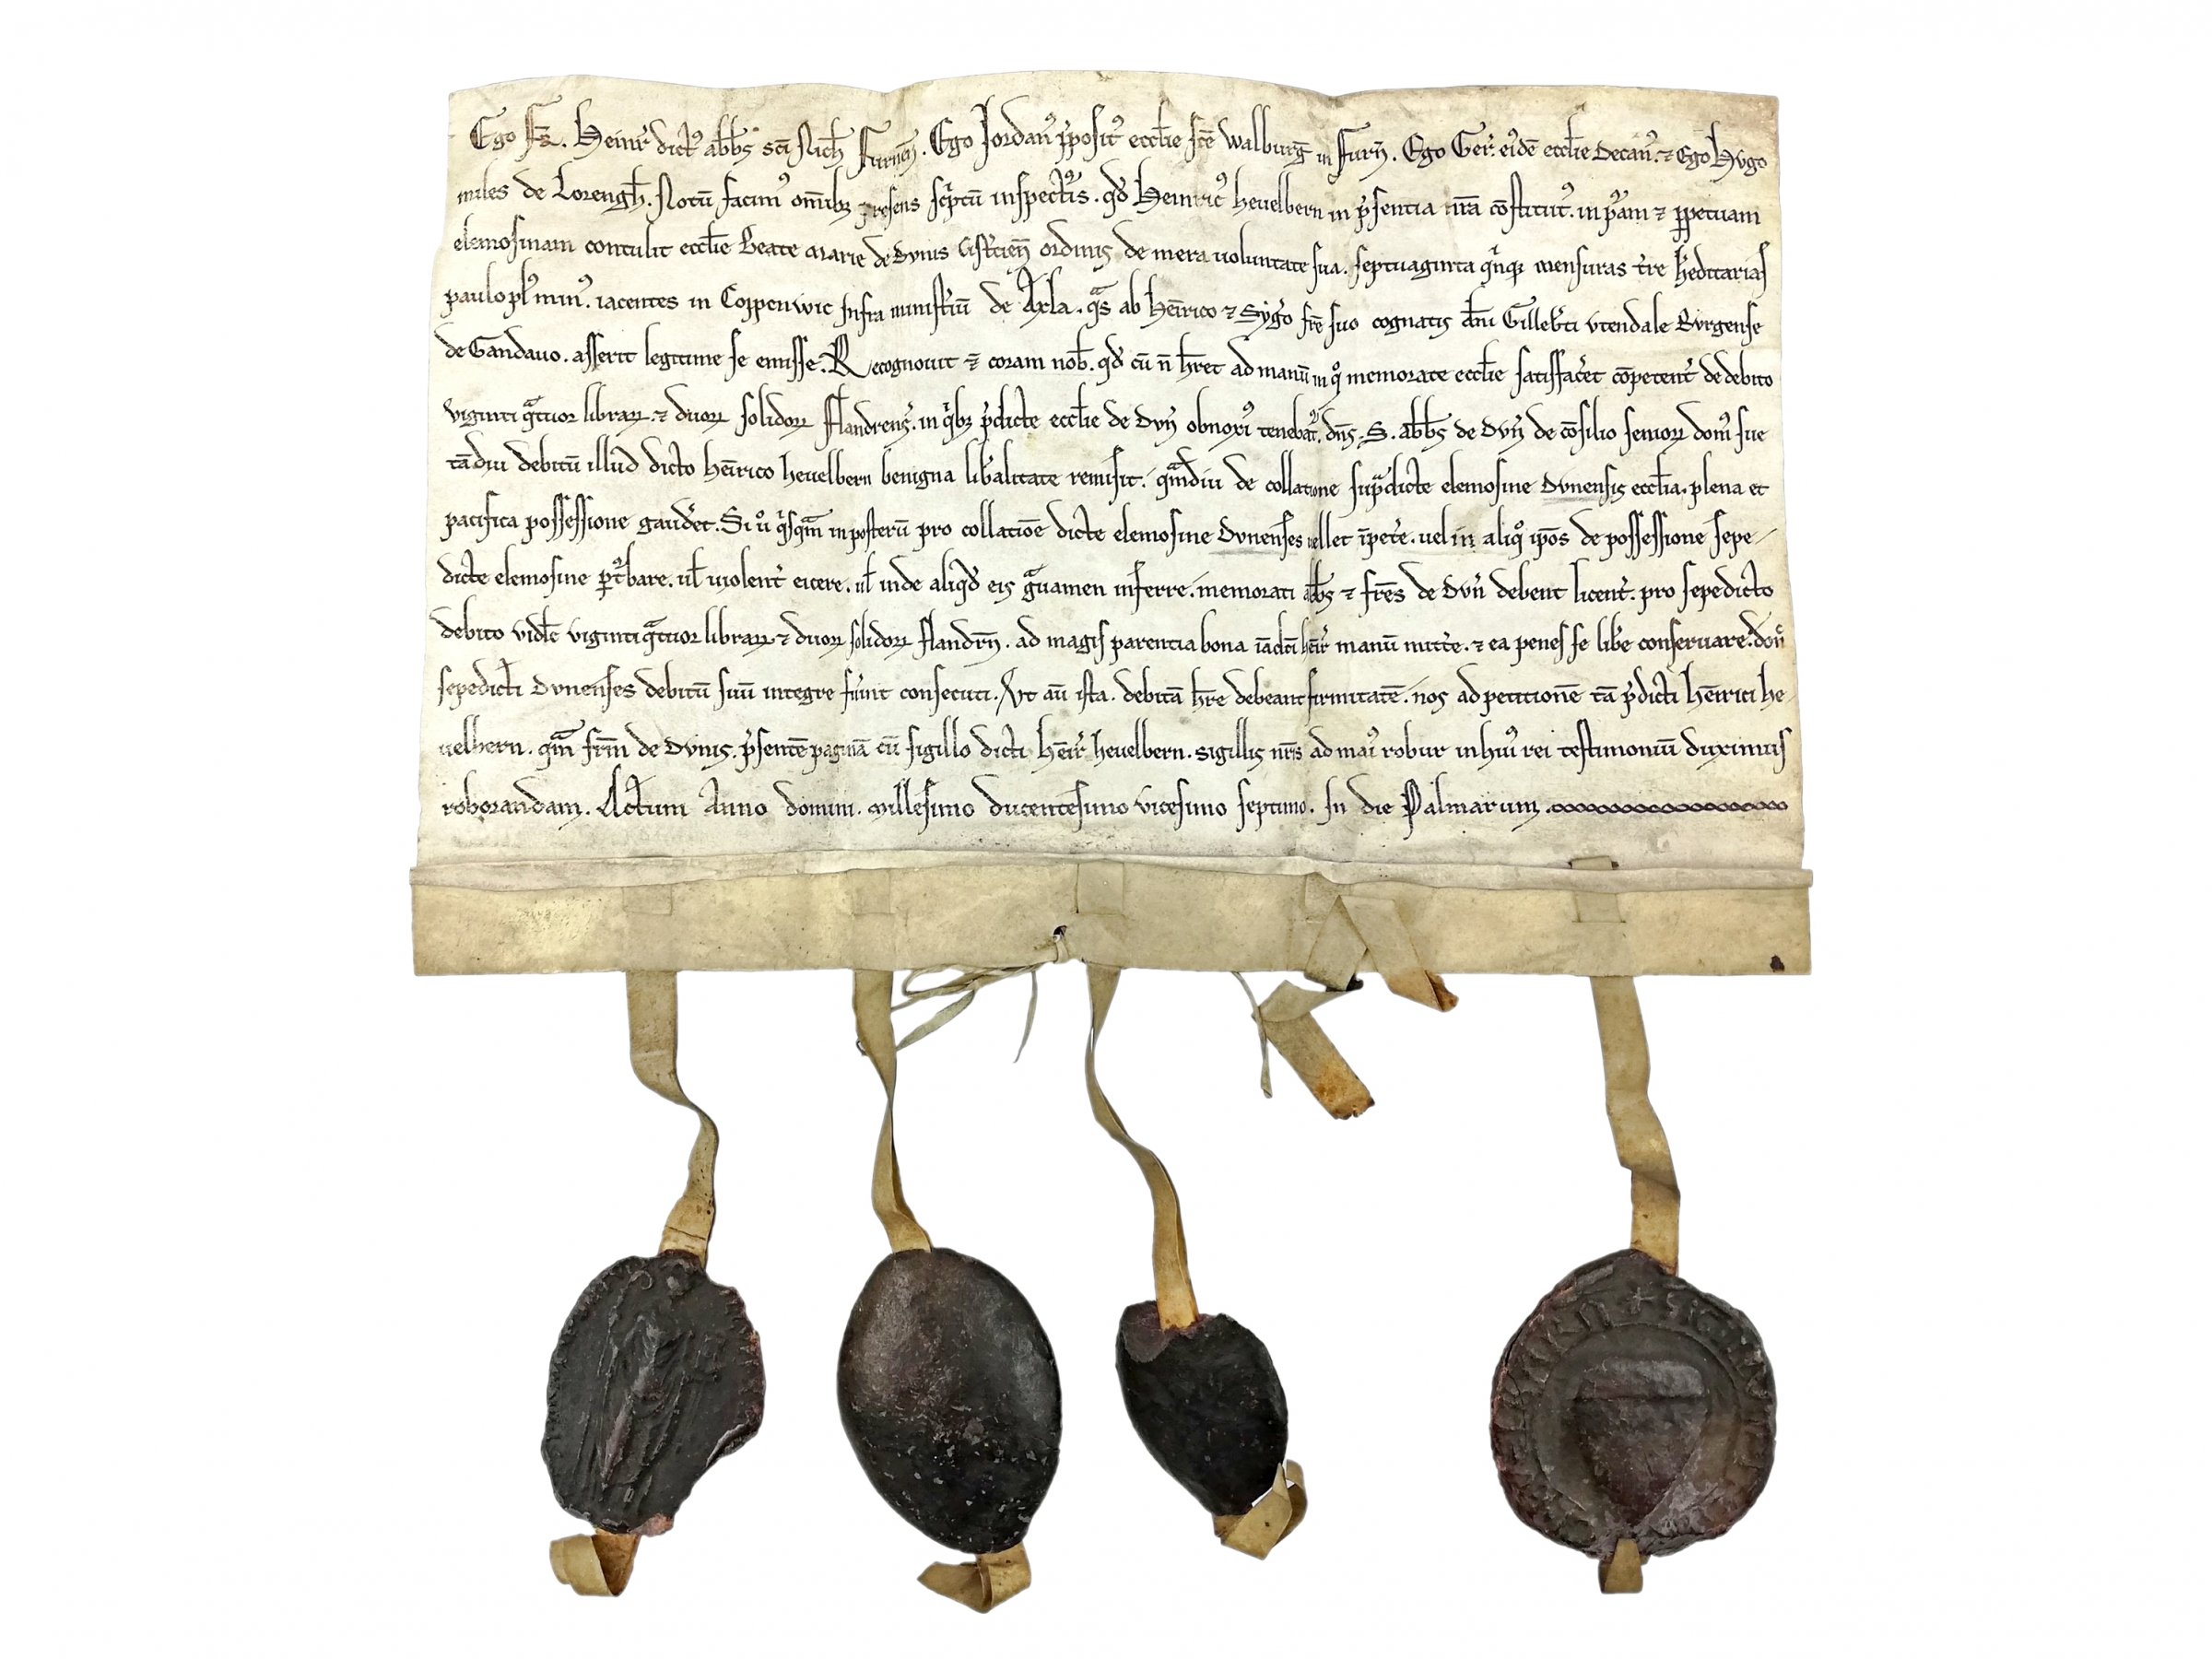 Ego Fr̄. Heinr̄ dict᷒ abb̄s sc̄i Nich̄ Furneñ. Ego Jordan᷒ p̄posit᷒ eccl̄ie sc̄e Walburḡ in Furñ. Ego Ger̄. ei᷒dē eccl̄ie Decan᷒. ⁊ Ego Hvgo
miles de Lorengh̄. Notū facim᷒ om̄ibꝫ presens sc͛ptū inspect᷒is. qd̄ Heinric᷒ hevelbern in p͛sentia nr̄a cōstitut᷒. in p᷒am ⁊ ꝑpetuam
elemosinam contulit eccl̄ie Beate Marie de Dvnis Cist̄cieñ ordinis de mera uoluntate sua. septuaginta qͥnqꝫ mensuras t͛re h͛editarias
paulo pl᷒ min᷒. iacentes in Coppenwic Infra minist͛iū de Axla. qͣs ab Hēirico ⁊ Sygͦo fr̄e suo cognatis dn̄i Gilleb͛ti vtendale Bvrgense
de Gandauo. asserit legitime se emisse. Recognouit ⁊ coram nob̄. qd̄ cū n̄ h̄ret ad manū in qͦ memorate eccl̄ie satisfac͛et cōpetent͛ de debito
viginti qͣtuor librarꝝ ⁊ duorꝝ solidorꝝ Flandrens̄. in qͥbꝫ p͛dicte eccl̄ie de Dvñ obnoxi᷒ tenebat᷒. dn̄s. S. abb̄s de Dvñ de cōsilio seniorꝝ dom᷒ sue
tādiu debitū illud dicto hēirico hevelbern benigna lib͛alitate remisit. qͣmdiu de collatione supͣdicte elemosine Dvnensis eccl̄ia. plena et
pacifica possessione gaud͛et. Si uͦ qͥsqͣm in posterū pro collatiōe dicte elemosine Dvnenses uellet īpet͛e. uel in aliqͦ ip̄os de possessione sepe-
dicte elemosine ꝑt᷒bare. ul̄ uiolent͛ eicere. ul̄ inde aliqd̄ eis gͣuamen inferre. memorati abb̄s ⁊ fr̄es de Dvñ debent licent͛. pro sepedicto
debito vidl̄c viginti qͣtuor librarꝝ ⁊ duorꝝ solidorꝝ Flandrn̄. ad magis parentia bona iādc̄i hēir̄ manū mitt͛e. ⁊ ea penes se lib͛e conseruare. doñ
sepedicti Dvnenses debitū suū integre fu͛int consecuti. Vt aū ista. debitā h̄re debeant firmitatē. nos ad petitionē tā p͛dicti hēirici he-
uelbern. qͣm fr̄m de Dvnis. p͛sentē paginā cū sigillo dicti hēir̄ hevelbern. sigillis nr̄is ad mai᷒ robur in hui᷒ rei testimoniū duximus
roborandam. Actum Anno domini. Millesimo ducentesimo vicesimo septimo. In die Palmarum.